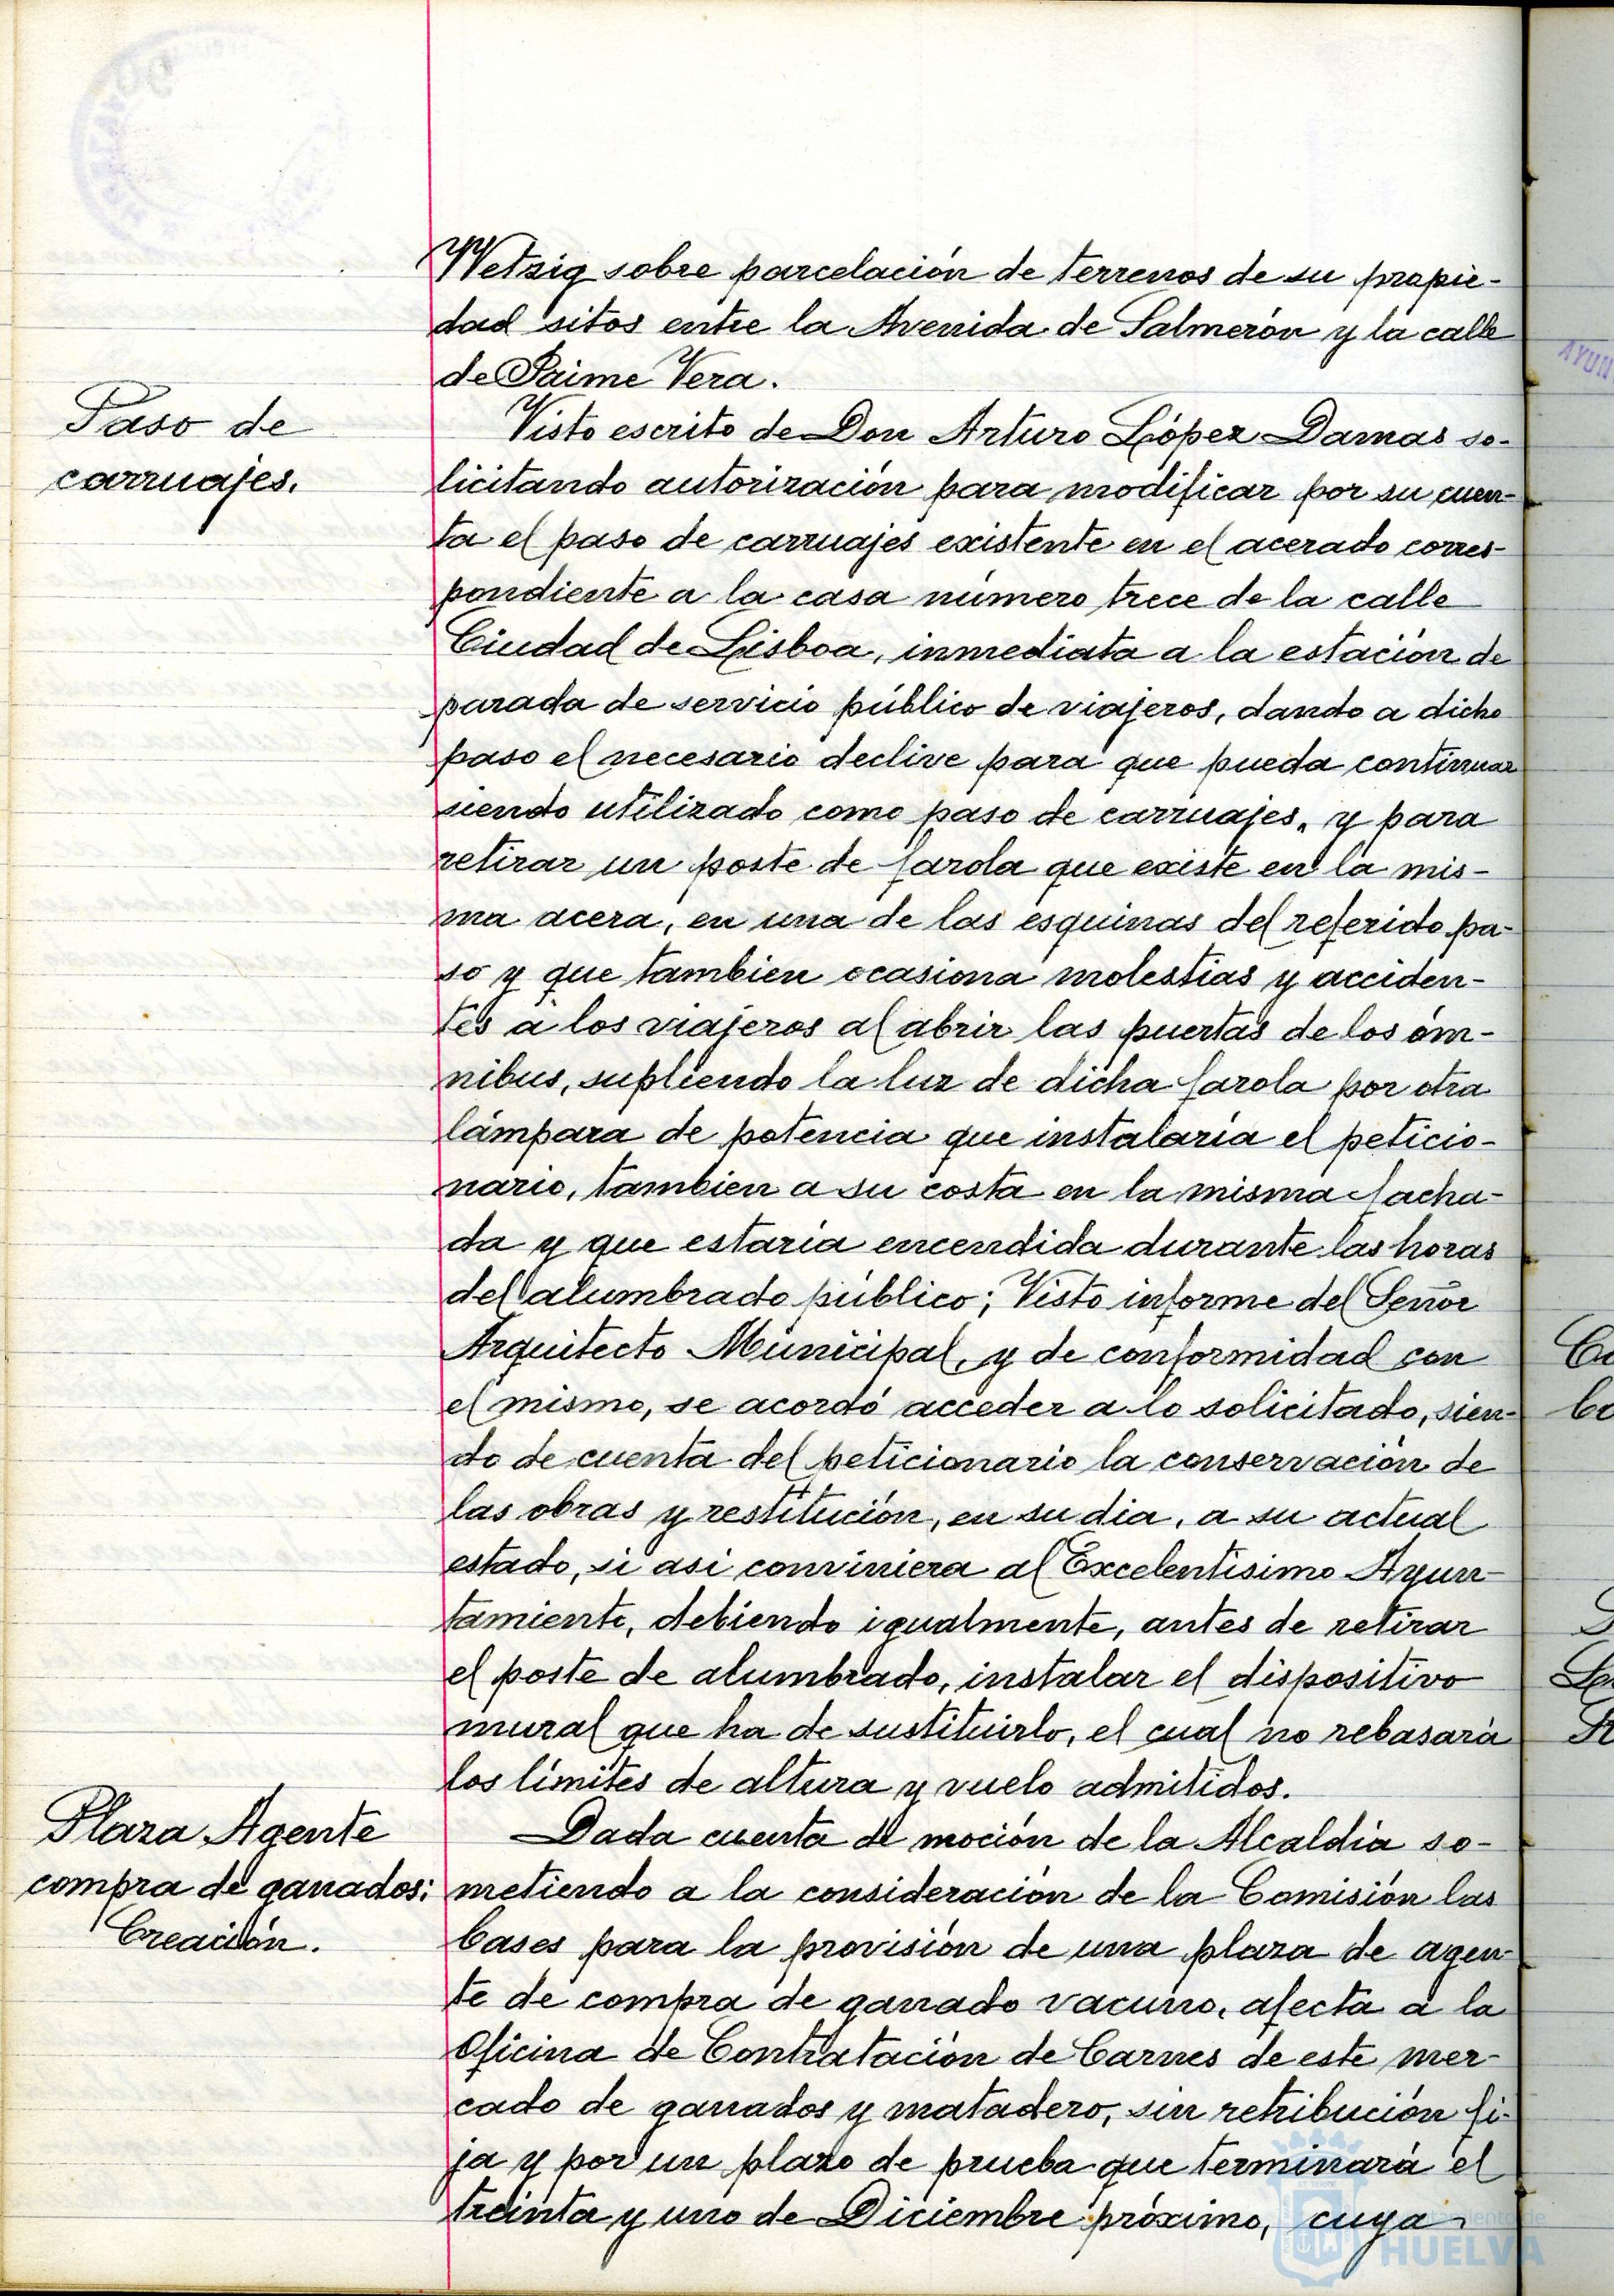 Wetzig sobre parcelación de terrenos de su propie-
dad sitos entre la Avenida de Salmerón y la calle
de Jaime Vera.
Paso de
carruajes.
Visto escrito de Don Arturo López Damas so-
licitando autorización para modificar por su cuen-
ta el paso de carruajes existente en el acerado corres-
pondiente a la casa número trece de la calle
Ciudad de Lisboa, inmediata a la estación de
parada de servicio público de viajeros, dando a dicho
paso el necesario declive para que pueda continuar
siendo utilizado como paso de carruajes, y para
retirar un poste de farola que existe en la mis-
ma acera, en una de las esquinas del referido pa-
so y que tambien ocasiona molestias y acciden-
tes a los viajeros al abrir las puertas de los óm-
nibus, supliendo la luz de dicha farola por otra
lámpara de potencia que instalaría el peticio-
nario, tambien a su costa en la misma facha-
da y que estaría encendida durante las horas
del alumbrado público; Visto informe del Señor
Arquitecto Municipal, y de conformidad con
el mismo, se acordó acceder a lo solicitado, sien-
do de cuenta del peticionario la conservación de
las obras y restitución, en su dia, a su actual
estado, si asi conviniera al Excelentísimo Ayun-
tamiento, debiendo igualmente, antes de retirar
el poste de alumbrado, instalar el dispositivo
mural que ha de sustituirlo, el cual no rebasará
los límites de altura y vuelo admitidos.
Plaza Agente
compra de ganados:
Creación.
Dada cuenta de moción de la Alcaldía so-
metiendo a la consideración de la Comisión las
bases para la provisión de una plaza de agen-
te de compra de ganado vacuno, afecta a la
Oficina de Contratación de Carnes de este mer-
cado de ganados y matadero, sin retribución fi-
ja y por un plazo de prueba que terminará el
treinta y uno de Diciembre próximo, cuya
AYUN
HUELVA